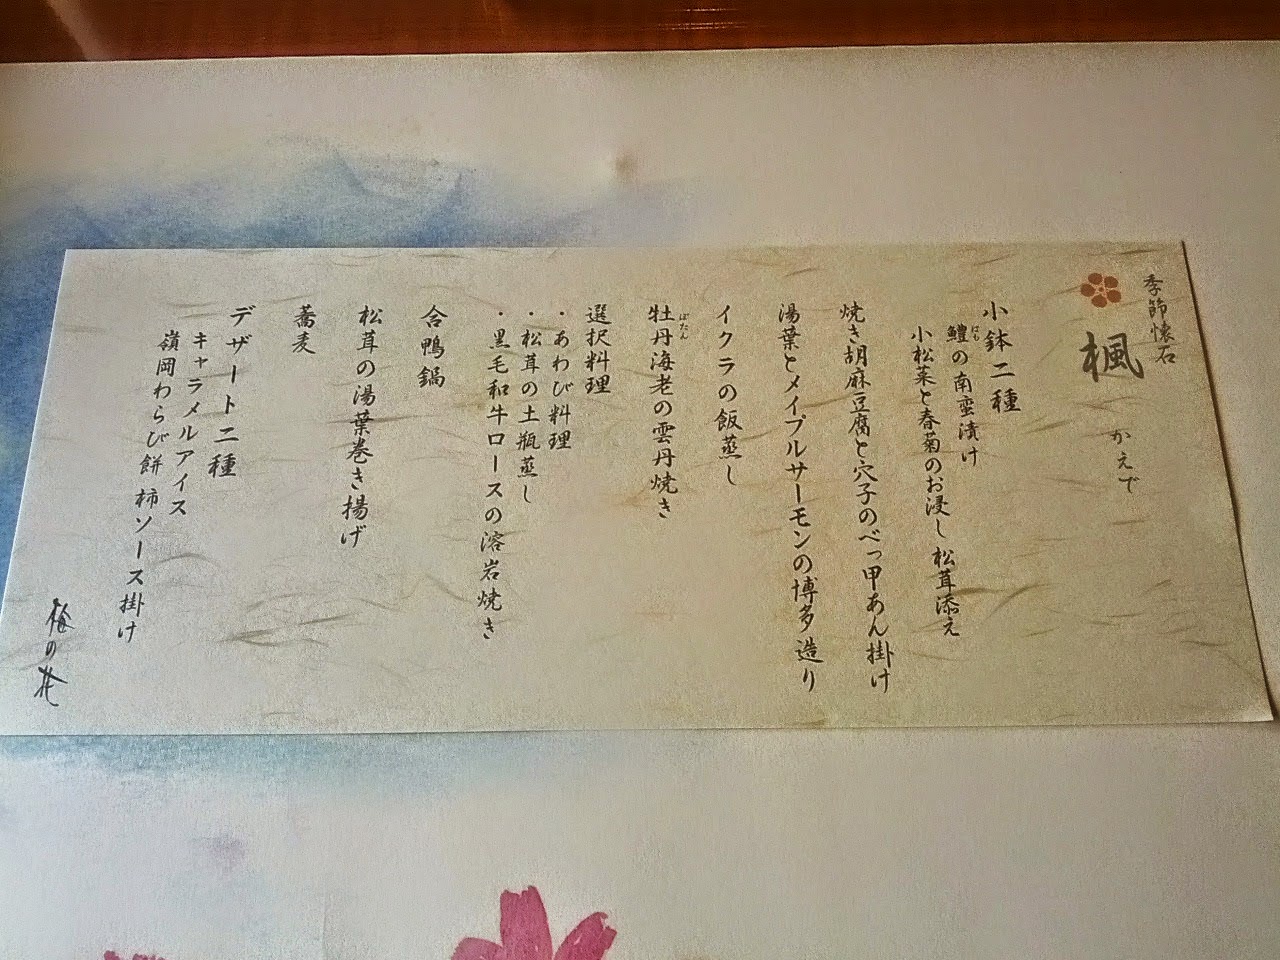 季節懐石
楓 かえで
小鉢二種
鱧の南蛮漬け
はも
小松菜と春菊のお浸し 松茸添え
焼き胡麻豆腐と穴子のべっ甲あん掛け
湯葉とメイプルサーモンの博多造り
イクラの飯蒸し
牡丹海老の雲丹焼き
ぼたん
選択料理
・あわび料理
・松茸の土瓶蒸し
・黒毛和牛ロースの溶岩焼き
合鴨鍋
松茸の湯葉巻き揚げ
蕎麦
デザート二種
キャラメルアイス
嶺岡わらび餅 柿ソース掛け
梅の花